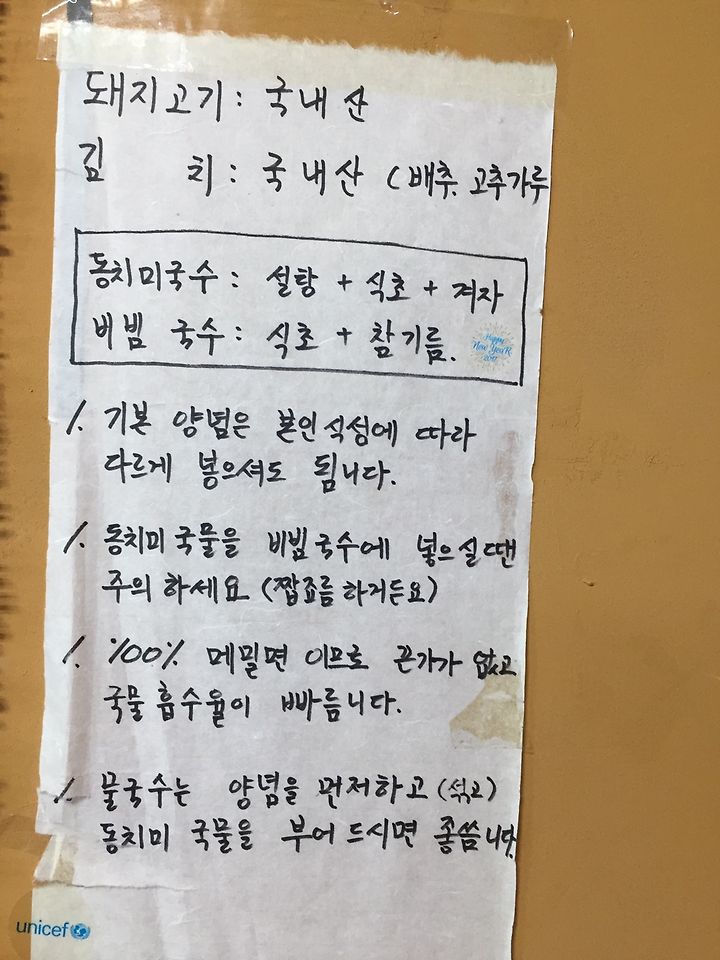 돼지고기: 국내산
김 치: 국내산 (배추. 고추가루
동치미국수: 설탕 + 식초 + 겨자
비빔 국수: 식초 + 참기름.
Happy
New Year
2017
1. 기본 양념은 본인식성에 따라
다르게 넣으셔도 됩니다.
1. 동치미국물을 비빔국수에 넣으실땐
주의하세요 (짭죠름하거든요)
1. 100% 메밀면 이므로 끈기가 없고
국물흡수율이 빠릅니다.
1. 물국수는 양념을 먼저하고 (섞고)
동치미 국물을 부어드시면 좋씀니다.
unicef